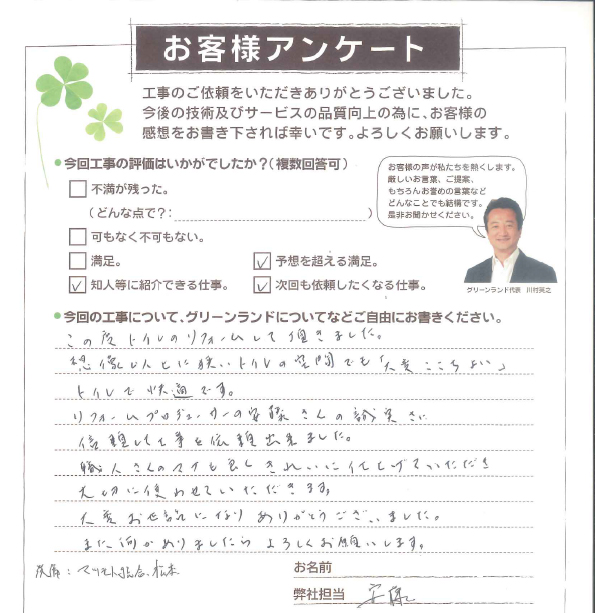 お客様アンケート
工事のご依頼をいただきありがとうございました。
今後の技術及びサービスの品質向上の為に、お客様の
感想をお書き下されば幸いです。よろしくお願いします。
●今回工事の評価はいかがでしたか?(複数回答可)
不満が残った。
(どんな点で?: )
可もなく不可もない。
満足。
予想を超える満足。
知人等に紹介できる仕事。
次回も依頼したくなる仕事。
お客様の声が私たちを熱くします。
厳しいお言葉、ご提案、
もちろんお誉めの言葉など
どんなことでも結構です。
是非お聞かせください。
グリーンランド代表 川村英之
●今回の工事について、グリーンランドについてなどご自由にお書きください。
この度トイレのリフォームして頂きました。
想像以上に狭いトイレの空間でも「大変ここちよい」
トイレで快適です。
リフォームプロデューサーの安藤さんの誠実さに
信頼して工事を依頼出来ました。
職人さんのマナも良くきれいに仕上げていただき
大切に使わせていただきます。
大変お世話になりありがとうございました。
また何かありましたらよろしくお願いします。
お名前
弊社担当 安藤